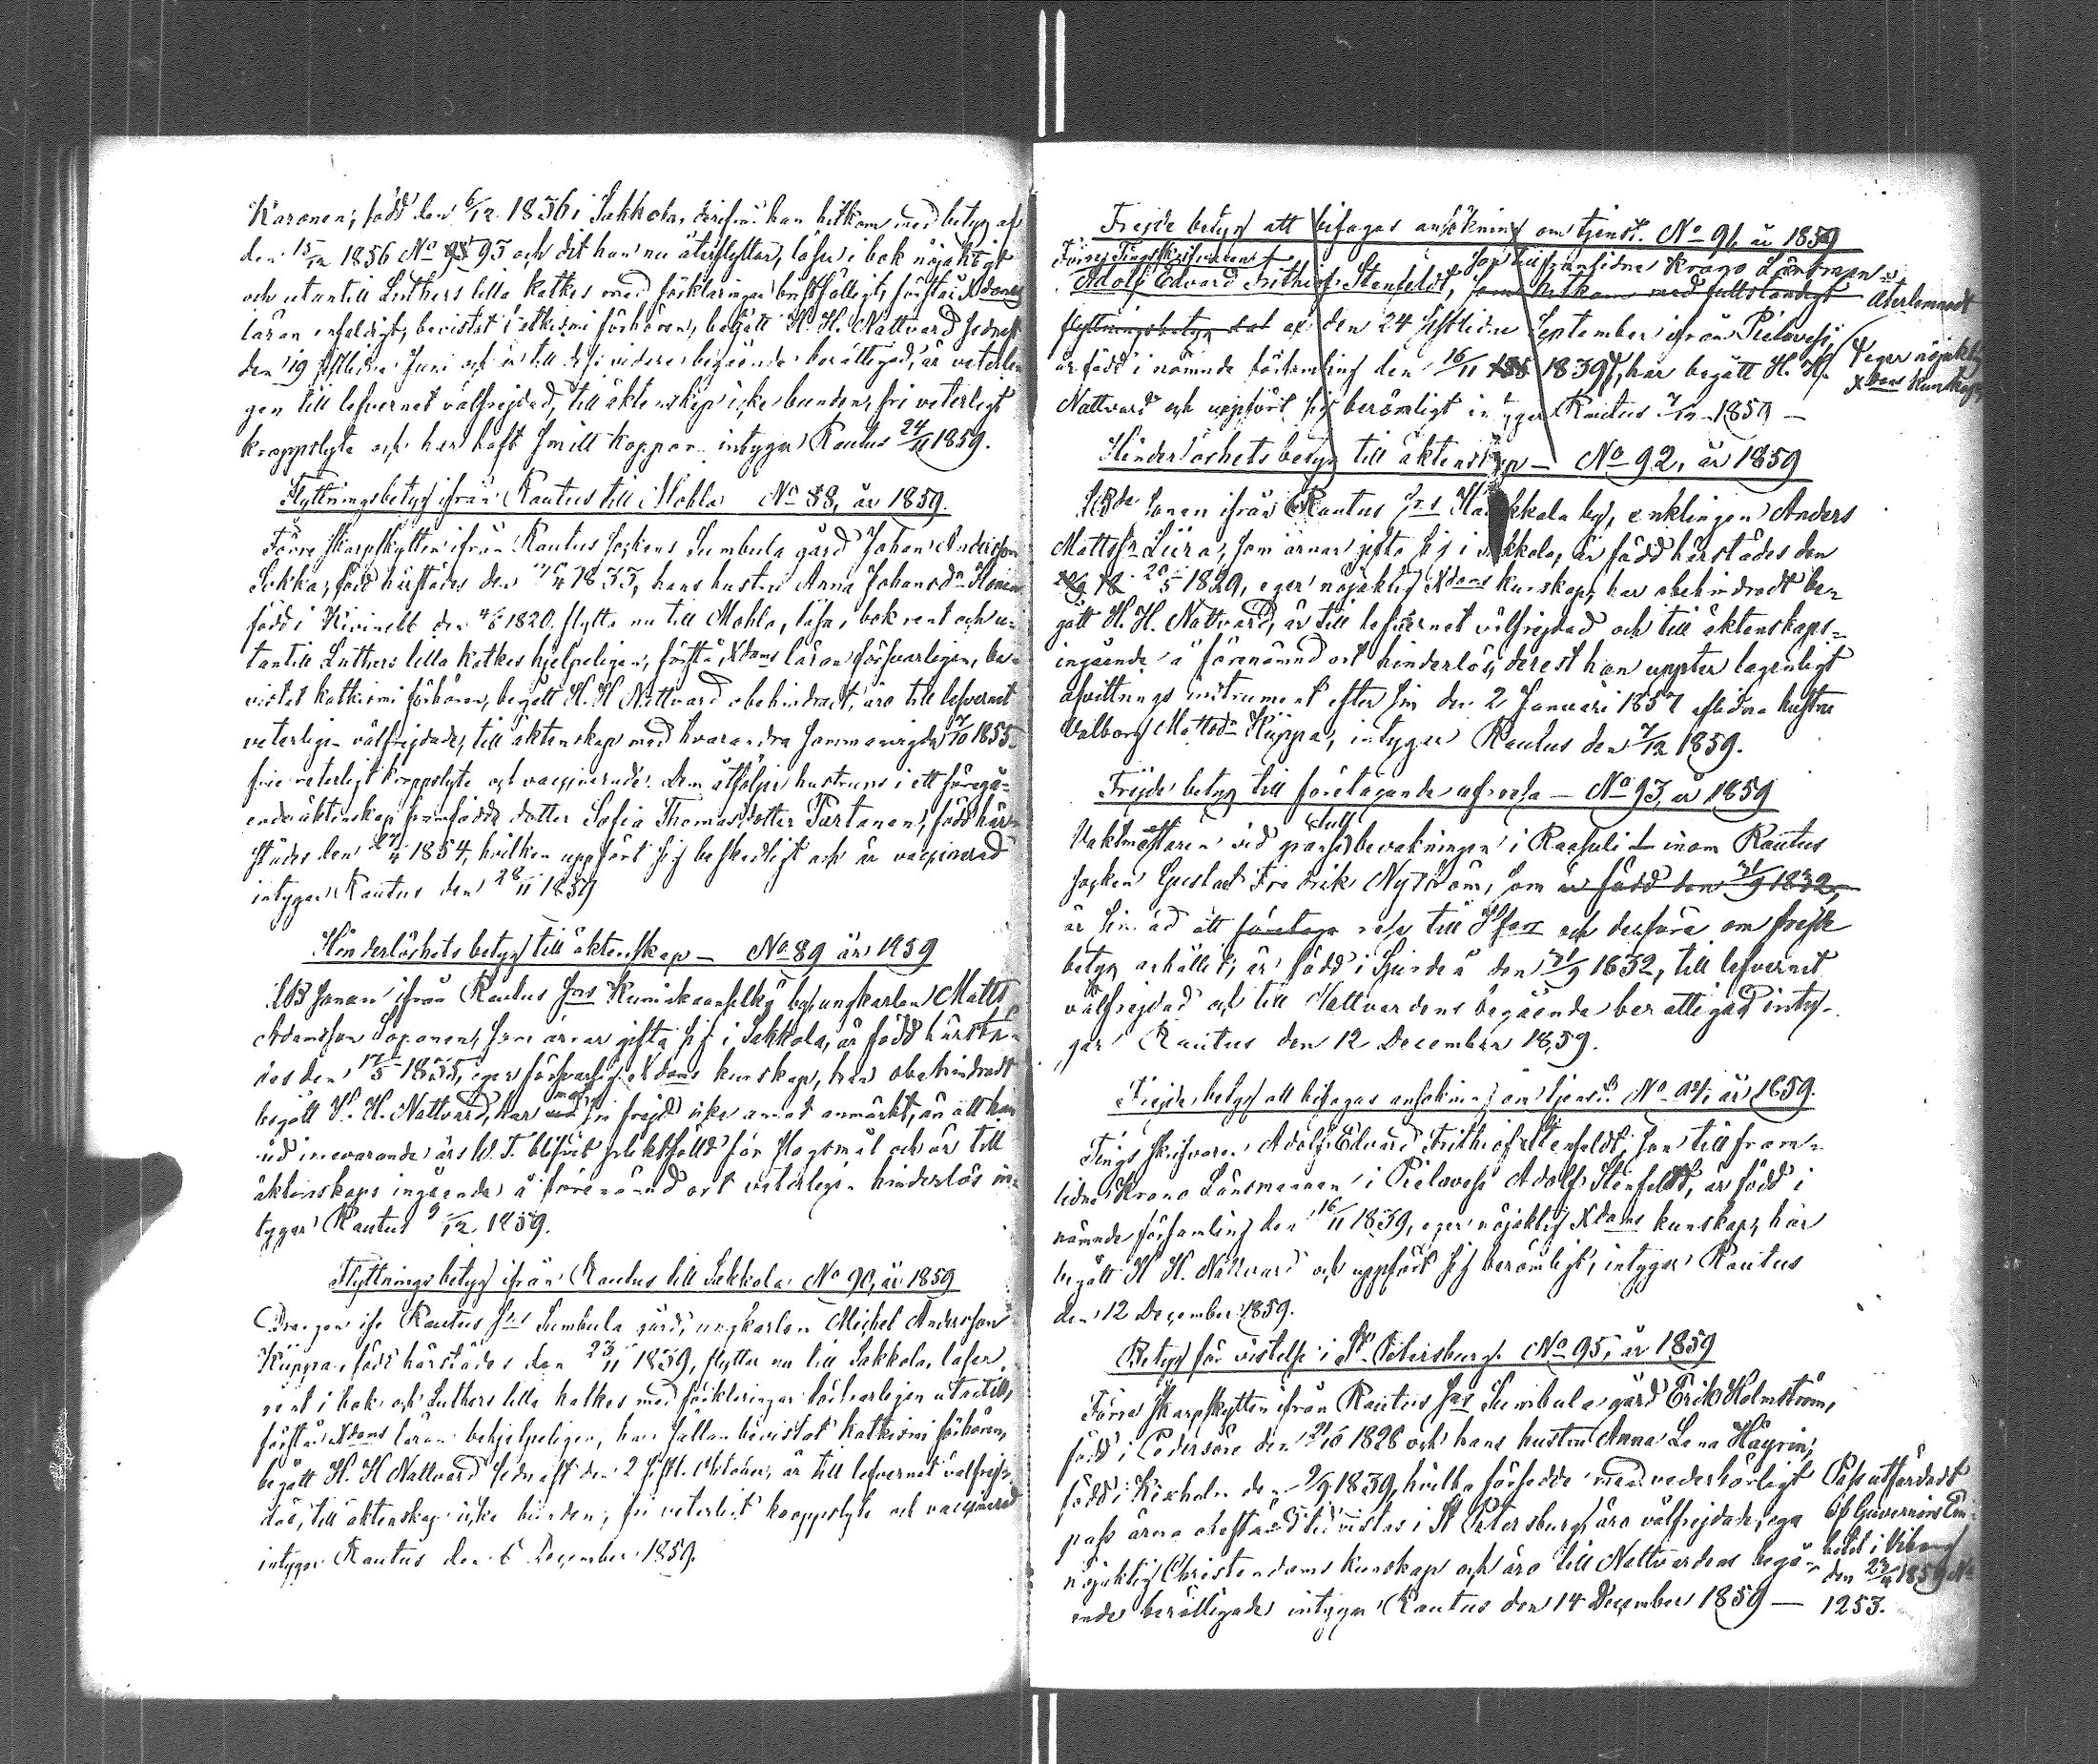 Karonen, född den 6/12 1836 i Sakkola, därifrån han hitkom med betyg af
den 15/12 1856 No 93 och dit han nu återflyttar, läser i bok nöjaktigt
och utantill Luthers lilla katkes med förklaringar bristfälligt, förstår Xdoms
läran enfaldigt, bevistat katkismi förhören, begått H. H. Nattvard sednast
den 19 sistlidne Juni och är till dess vidare begående berättigad, är veterli-
gen till lefvernet välfrejdad, till äktenskap icke bunden, fri veterligt
kroppslyte och har haft smitt koppor intygar Rautus 24/11 1859.
Flyttningsbetyg ifrån Rautus till Mohla No 88, år 1859.
Förre Skarpskytten ifrån Rautus sockens Sumbula gård Johan Andersson
Sokka, född härstädes den 1833, hans hustru Anna Johansdr
född i Kivinebb den 4/6 1820 flytta nu till Mohla, läsa i bok rent och u-
tantill Luthers lilla katkes hjelpeligen, förstå Xdoms läran försvarligen, be-
vistat katkismi förhören, begått H. H Nattvard obehindradt, äro till lefvernet
veterligen välfrejdade, till äktenskap med hvarandra sammanvigda 1855
frie veterligt kroppslyte och vaccinerade. Dem åtföljer hustruns i ett föregå-
ende äktenskap framfödde dotter Sofia Thomasdotter Partanen, född här-
städes den 1854, hvilken uppfört sig beskedligt och är vaccinerad
intygar Rautus den 28/11 1859
Hinderlöshets betyg till äktenskap — No 89 år 1859
LB Sonen ifrån Rautus Sns by ungkarlen Matts
Adamsson Soponen, som ärnar gifta sig i Sakkola, är född härstä-
des den 17/5 1835, eger försvarlig Xdoms kunskap, har obehindradt
begått H. H. Nattvard, har mot sin frejd icke annat anmärkt, än att han
vid innevarande års W. T. blifvit sakfälld för slagsmål och är till
äktenskaps ingående å förenämnd ort veterligen hinderlös in-
tygar Rautus 9/12 1859.
Flyttningsbetyg ifrån Rautus till Sakkola No 90, år 1859
Drengen ifr Rautus Sns Sumbula gård, ungkarlen Michel Andersson
Küppa, född härstädes den 23/11 1839, flyttar nu till Sakkola, läser
rent i bok och Luthers lilla katkes med förklaringar försvarligen utantill,
förstår Xdoms läran behjelpeligen, har sällan bevistat katkismi förhören,
begått H. H Nattvard sednast den 2 sistl. October, är till lefvernet välfrej-
dad, till äktenskap icke bunden, fri veterligt kroppslyte och vaccinerad
intygar Rautus den 6 December 1859.
Frejde betyg att bifogas ansökning om tjenst. No 91 år 1859
Förre Tingsskrifvaren son till framlidne Krono Länsman
Adolf Edvard Frithiof Stenfeldt, som hitkom med fullständigt Återlemnadt
flyttningsbetyg af den 24 sistlidne September ifrån Pielavesi,
är född i nämnde församling den 16/11 1839, har begått H. H. eger nöjaktig
Xdoms kunskap
Nattvard och uppfört sig berömligt intygar Rautus 7/12 1859 —
Hinderlöshets betyg till äktenskap — No 92, år 1859
LBde Sonen ifrån Rautus Sns by, enklingen Anders
Mattsson Liira, som ärnar gifta sig i Sakkola, är född härstädes den
20/5 1829, eger nöjaktig Xdoms kunskap, har obehindradt be-
gått H. H. Nattvard, är till lefvernet välfrejdad och till äktenskaps-
ingående å förenämnd ort hinderlös, derest han uppter lagenligt
afvittnings instrument efter sin den 2 Januari 1857 aflidna hustru
Valborg Mattsdr Küppa, intygar Rautus den 7/12 1859.
Frejde betyg till företagande af resa — No 93, år 1859
Vaktmästaren vid gränsetullbevakningen i Raasuli inom Rautus
socken Gustaf Fredrik Nyström, som är född den 21/9 1832,
är sinnad att företaga resa till Hfors och derföre om frejde
betyg anhållit, är född i Sjundeå den 21/9 1832, till lefvernet
välfrejdad och till Nattvardens begående berättigad inty-
gar Rautus den 12 December 1859.
Frejde betyg att bifogas ansökning om tjenst No 94, år 1859.
Tings skrifvaren Adolf Edvard Frithiof Stenfeldt, son till fram-
lidne Krono Länsmannen i Pielavesi Adolf Stenfeldt, är född i
nämnde församling den 16/11 1839, eger nöjaktig Xdoms kunskap, har
begått H H. Nattvard och uppfört sig berömligt, intygar Rautus
den 12 December 1859.
Betyg för vistelse i St Petersburg. No 95, år 1859
Förre Skarpskytten ifrån Rautus Sns Sumbula gård Erik Holmström,
född i Pedersöre den 1828 och hans hustru Anna Lena Häyrin,
född i Kexholm den 2/9 1839, hvilka försedde med vederbörligt
pass ärna en tid vistas i St Petersburg, äro välfrejdade, ega
nöjaktig Christendoms kunskap och äro till Nattvardens begå-
ende berättigade intygar Rautus den 14 December 1859 —
Pass utfärdadt
af Guvernörs Em-
betet i Viborg
den 1859 No
1253.